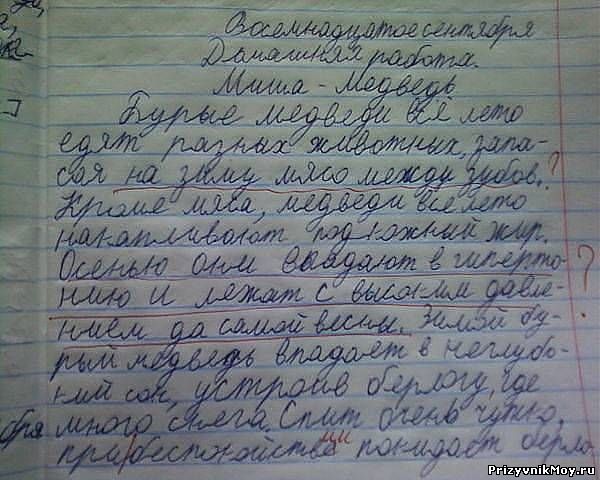 Восемнадцатое сентября
Домашняя работа.
Миша - Медведь
Бурые медведи всё лето
едят разных животных, запа-
сая на зиму мясо между зубов. ?
Кроме мяса, медведи всё лето
накапливают подкожный жир.
Осенью они впадают в гиперто-
нию и лежат с высоким давле- ?
нием до самой весны. Зимой бу-
рый медведь впадает в неглубо-
кий сон, устроив берлогу, где
бря много снега. Спит очень чутко,
при беспокойстве покидает берло
PrizyvnikMoy.ru